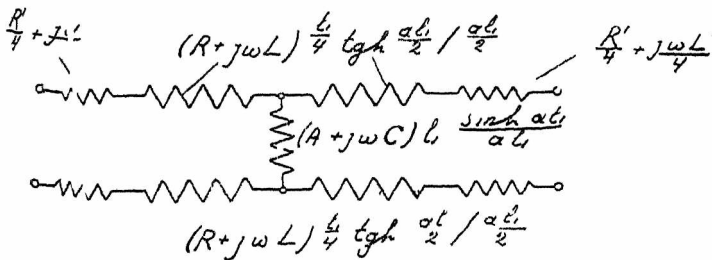 R'/4 + j
(R+jωL) l₁/4 tgh αl₁/2 / αl₁/2
R'/4 + jωL/4
(A+jωC) l₁ sinh αl₁/αl₁
(R+jωL) l₁/4 tgh αl/2 / αl₁/2